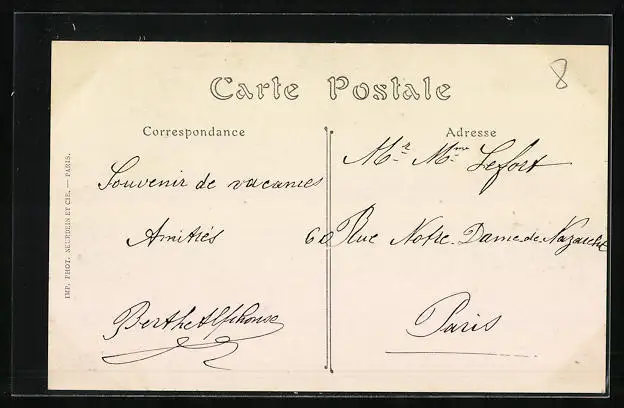 8
Carte Postale
Correspondance
Adresse
Souvenir de vacances
Amitiés
Berthe Alphonse
Mr. Mme Lefort
60 Rue Notre-Dame de Nazareth
Paris
IMP. PHOT. NEURDEIN ET CIE. — PARIS.